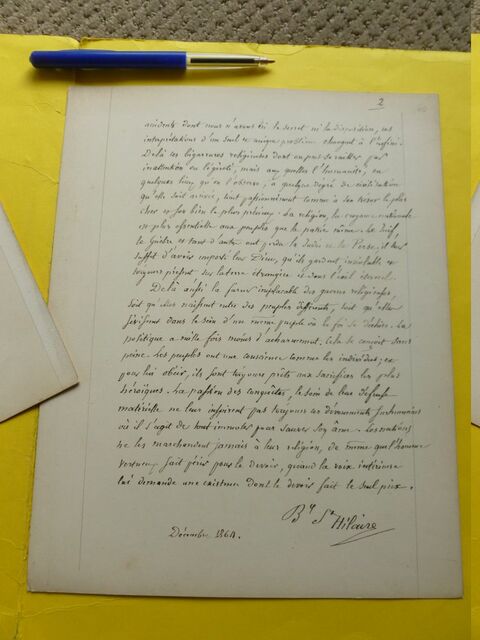 2
accidents dont nous n'avons ni le secret ni la disposition, ces
interprétations d'un seul et unique problème changent à l'infini.
De là ces bigarrures religieuses dont on peut se railler par
inattention ou légèreté, mais aux quelles l'humanité, en
quelque lieu qu'on l'observe, à quelque degré de civilisation
qu'elle soit arrivée, tient passionnément comme à son trésor le plus
cher et son bien le plus précieux. La religion, la croyance nationale
est plus essentielle aux peuples que la patrie même. Le Juif,
le Guèbre et tant d'autres ont perdu la Judée et la Perse; il leur
suffit d'avoir emporté leur Dieu, qu'ils gardent, inviolable et
toujours présent sur la terre étrangère et dans l'exil éternel.
De là aussi la fureur implacable des guerres religieuses,
soit qu'elles naissent entre des peuples différents, soit qu'elles
sévissent dans le sein d'un même peuple où la foi se déchire. La
politique a mille fois moins d'acharnement. Cela se conçoit sans
peine. Les peuples ont une conscience comme les individus; et
pour lui obéir, ils sont toujours prêts aux sacrifices les plus
héroïques. La passion des conquêtes, le soin de leur défense
matérielle ne leur inspirent pas toujours ces dévouements
où il s'agit de tout immoler pour sauver son âme. Les nations
ne les marchandent jamais à leur religion, de même que l'homme
vertueux sait périr pour le devoir, quand la voix intérieure
lui demande une existence dont le devoir fait le seul prix.
By St Hilaire
Décembre 1864.